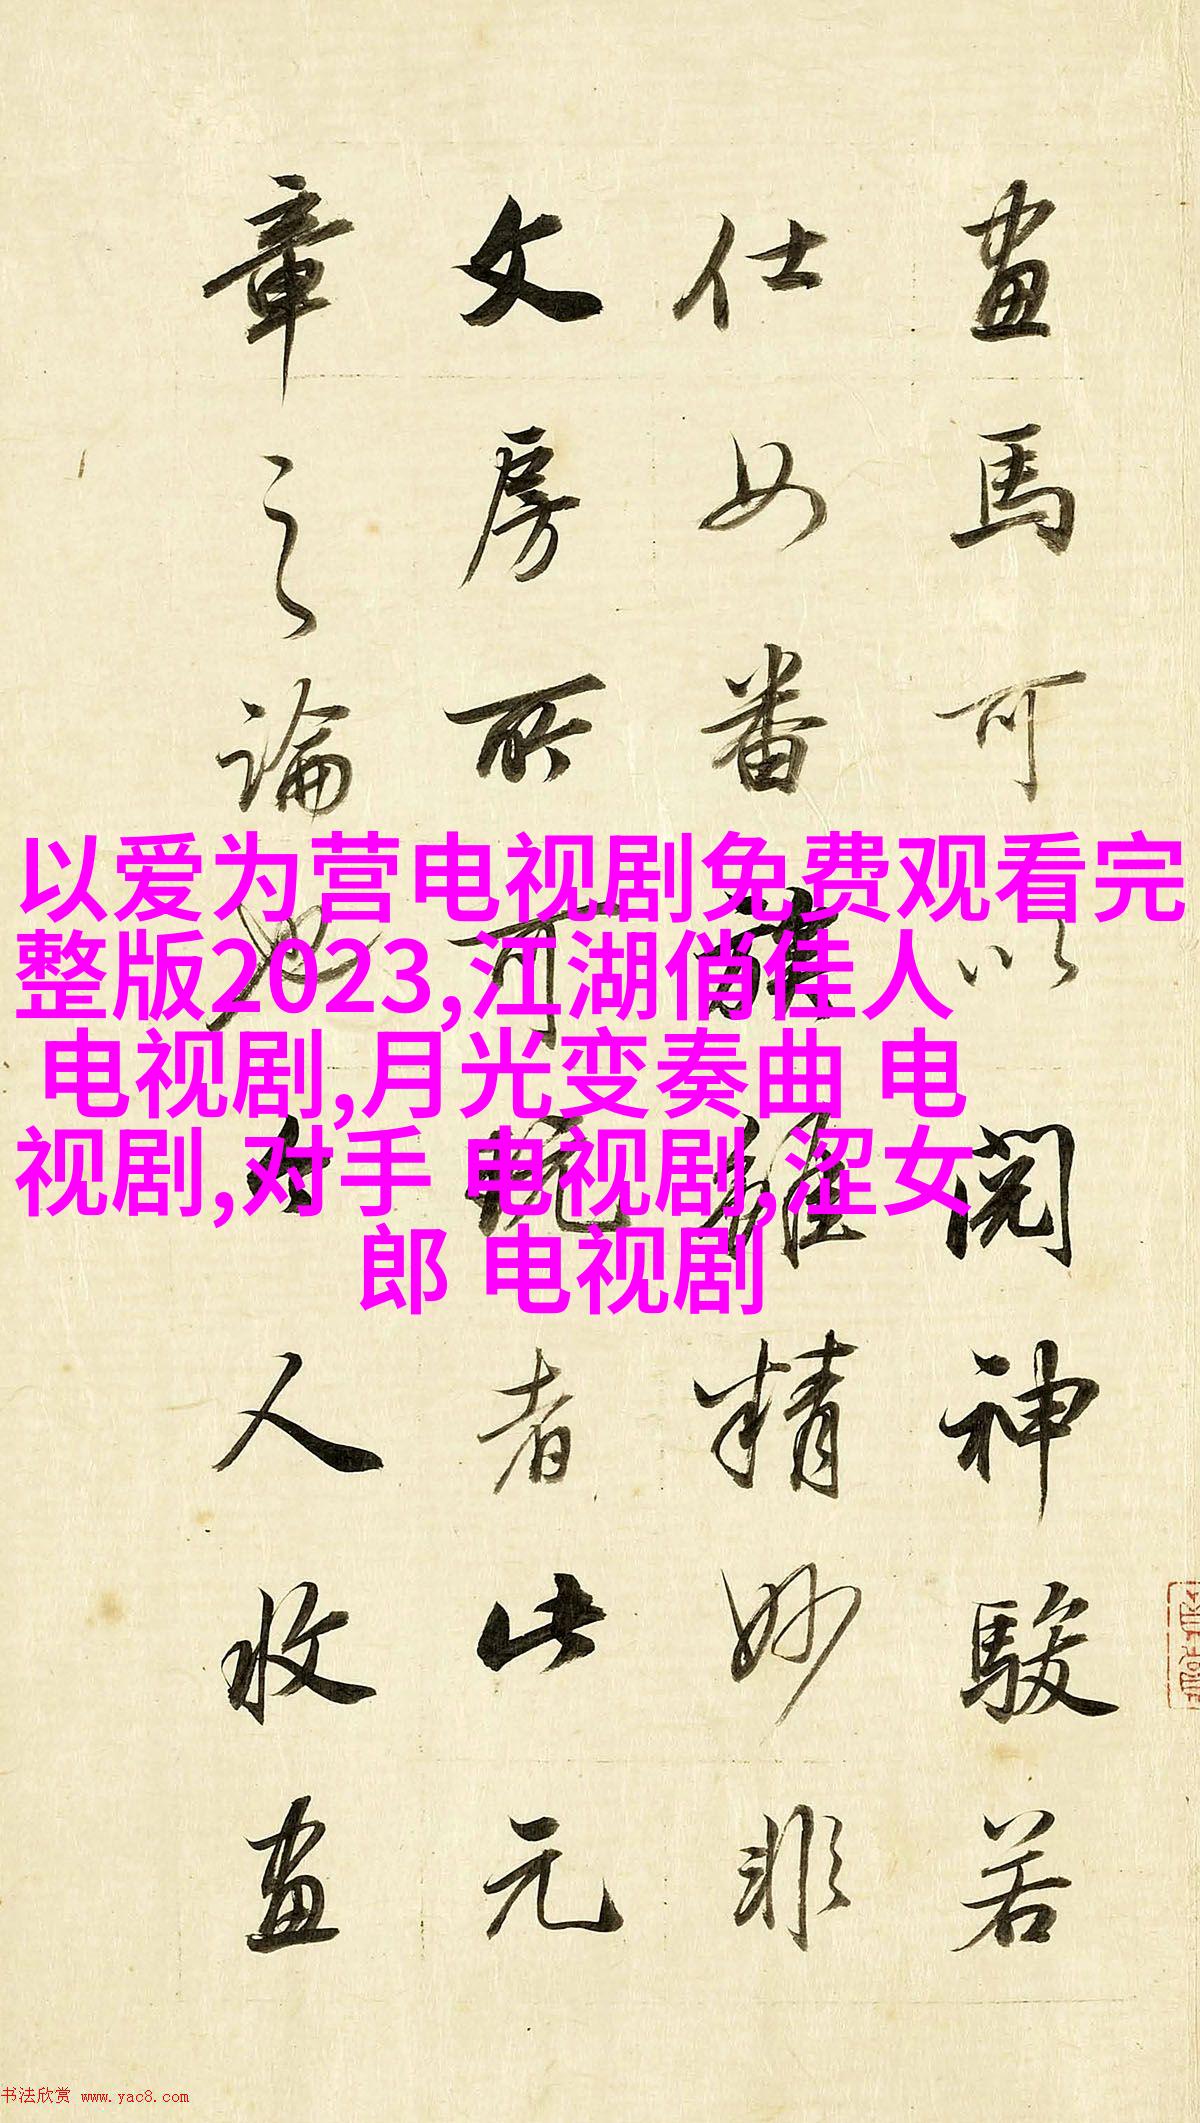 畫馬可以閱神駿若
仕女番族雖精妙非
文房所可玩者此元
章之論也今人收畫
以爱为营电视剧免费观看完
整版2023,江湖俏佳人
电视剧,月光变奏曲 电
视剧,对手 电视剧,涩女
郎 电视剧
书法欣赏 www.yac8.com